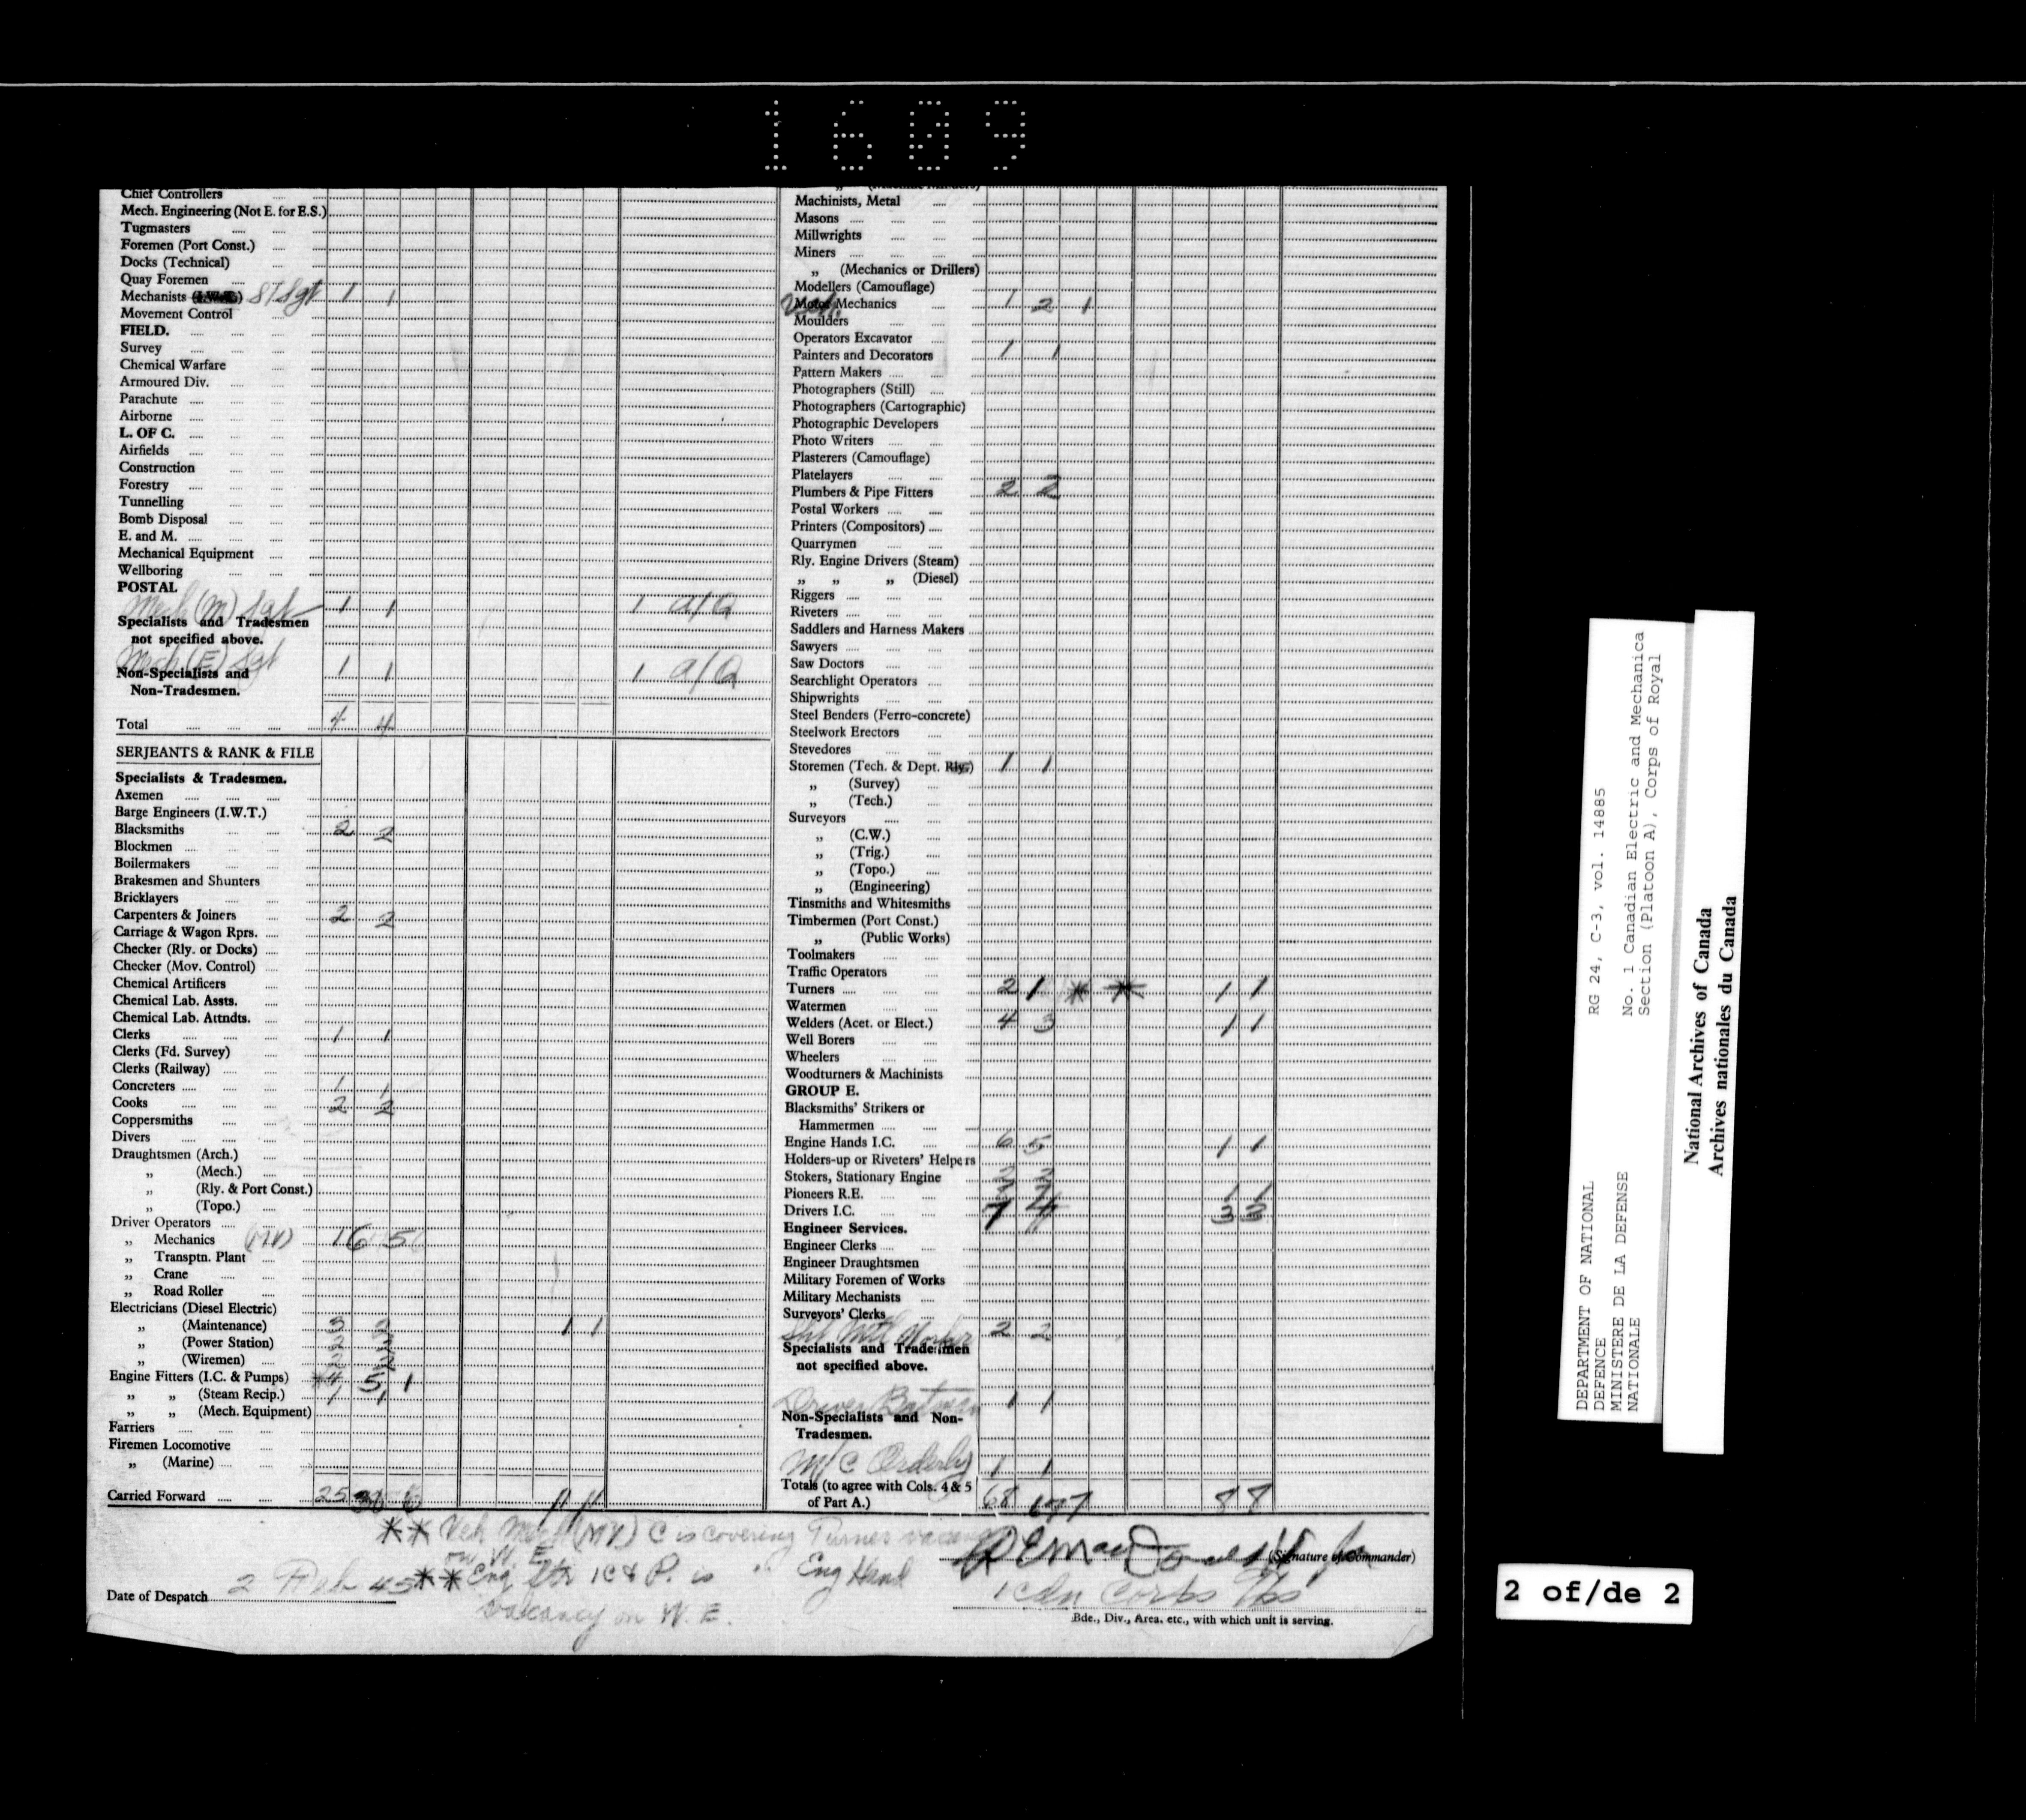 1609
Chief Controllers
Mech. Engineering (Not E. for E.S.)
Tugmasters
Foremen (Port Const.)
Docks (Technical)
Quay Foremen
Mechanists S/Sgt 1 1
Movement Control
FIELD.
Survey
Chemical Warfare
Armoured Div.
Parachute
Airborne
L. OF C.
Airfields
Construction
Forestry
Tunnelling
Bomb Disposal
E. and M.
Mechanical Equipment
Wellboring
POSTAL
Mech (M) Sgt 1 1 1 a/Q
Specialists and Tradesmen
not specified above.
Mech (E) Sgt
Non-Specialists and 1 1 1 a/Q
Non-Tradesmen.
Total 4 4
SERJEANTS & RANK & FILE
Specialists & Tradesmen.
Axemen
Barge Engineers (I.W.T.)
Blacksmiths 2 2
Blockmen
Boilermakers
Brakesmen and Shunters
Bricklayers
Carpenters & Joiners 2 2
Carriage & Wagon Rprs.
Checker (Rly. or Docks)
Checker (Mov. Control)
Chemical Artificers
Chemical Lab. Assts.
Chemical Lab. Attndts.
Clerks 1 1
Clerks (Fd. Survey)
Clerks (Railway)
Concreters 1 1
Cooks 2 2
Coppersmiths
Divers
Draughtsmen (Arch.)
„ (Mech.)
„ (Rly. & Port Const.)
„ (Topo.)
Driver Operators
„ Mechanics (MV)
„ Transptn. Plant
„ Crane
„ Road Roller
Electricians (Diesel Electric)
„ (Maintenance) 3 2 1 1
„ (Power Station) 2 2
„ (Wiremen) 2 2
Engine Fitters (I.C. & Pumps) *4 5 1
„ „ (Steam Recip.) 1 1
„ „ (Mech. Equipment)
Farriers
Firemen Locomotive
„ (Marine)
Carried Forward 25
Machinists, Metal
Masons
Millwrights
Miners
„ (Mechanics or Drillers)
Modellers (Camouflage)
Veh. Mechanics 1 2 1
Moulders
Operators Excavator
Painters and Decorators 1 1
Pattern Makers
Photographers (Still)
Photographers (Cartographic)
Photographic Developers
Photo Writers
Plasterers (Camouflage)
Platelayers
Plumbers & Pipe Fitters 2 2
Postal Workers
Printers (Compositors)
Quarrymen
Rly. Engine Drivers (Steam)
„ „ „ (Diesel)
Riggers
Riveters
Saddlers and Harness Makers
Sawyers
Saw Doctors
Searchlight Operators
Shipwrights
Steel Benders (Ferro-concrete)
Steelwork Erectors
Stevedores
Storemen (Tech. & Dept. Rly.) 1 1
„ (Survey)
„ (Tech.)
Surveyors
„ (C.W.)
„ (Trig.)
„ (Topo.)
„ (Engineering)
Tinsmiths and Whitesmiths
Timbermen (Port Const.)
„ (Public Works)
Toolmakers
Traffic Operators
Turners 2 1 * * 1 1
Watermen
Welders (Acet. or Elect.) 4 3 1 1
Well Borers
Wheelers
Woodturners & Machinists
GROUP E.
Blacksmiths' Strikers or
Hammermen
Engine Hands I.C. 6 5 1 1
Holders-up or Riveters' Helpers
Stokers, Stationary Engine
Pioneers R.E.
Drivers I.C. 7 4 3 3
Engineer Services.
Engineer Clerks
Engineer Draughtsmen
Military Foremen of Works
Military Mechanists
Surveyors' Clerks
Sht Mtl Worker 2 2
Specialists and Tradesmen
not specified above.
Driver Batman 1 1
Non-Specialists and Non-
Tradesmen.
M/C Orderly 1 1
Totals (to agree with Cols. 4 & 5
of Part A.) 68 8 8
** Veh Mech (MV) C is covering Turner vacancy
on W. E.
** Eng ftr IC & P. is " Eng Hand
vacancy on W. E.
Date of Despatch 2 Feb 45
(Signature of Commander)
1 Cdn Corps Tps
Bde., Div., Area. etc., with which unit is serving.
DEPARTMENT OF NATIONAL
DEFENCE
MINISTERE DE LA DEFENSE
NATIONALE
RG 24, C-3, vol. 14885
No. 1 Canadian Electric and Mechanica
Section (Platoon A), Corps of Royal
National Archives of Canada
Archives nationales du Canada
2 of/de 2